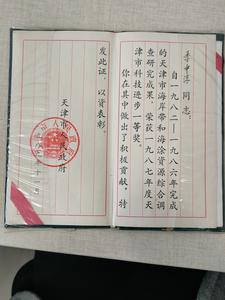 同志：
自一九八二—一九八六年完成
的天津市海岸带和海涂资源综合调
查研究成果，荣获一九八七年度天
津市科技进步一等奖。
你在其中做出了积极贡献，特
发此证，以资表彰。
天津市人民政府